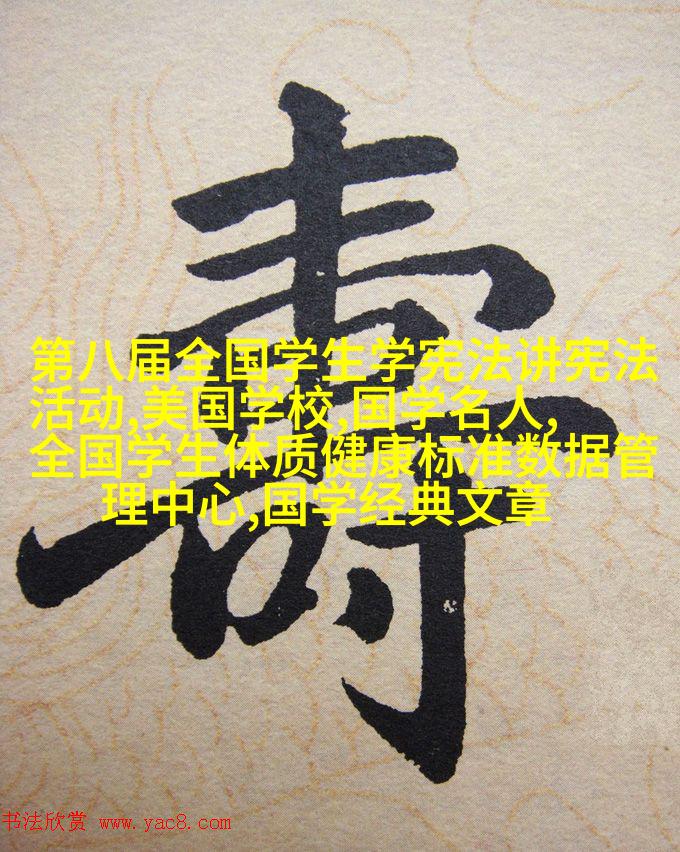 壽
第八届全国学生学宪法讲宪法
活动,美国学校,国学名人,
全国学生体质健康标准数据管
理中心,国学经典文章
书法欣赏 www.yac8.com